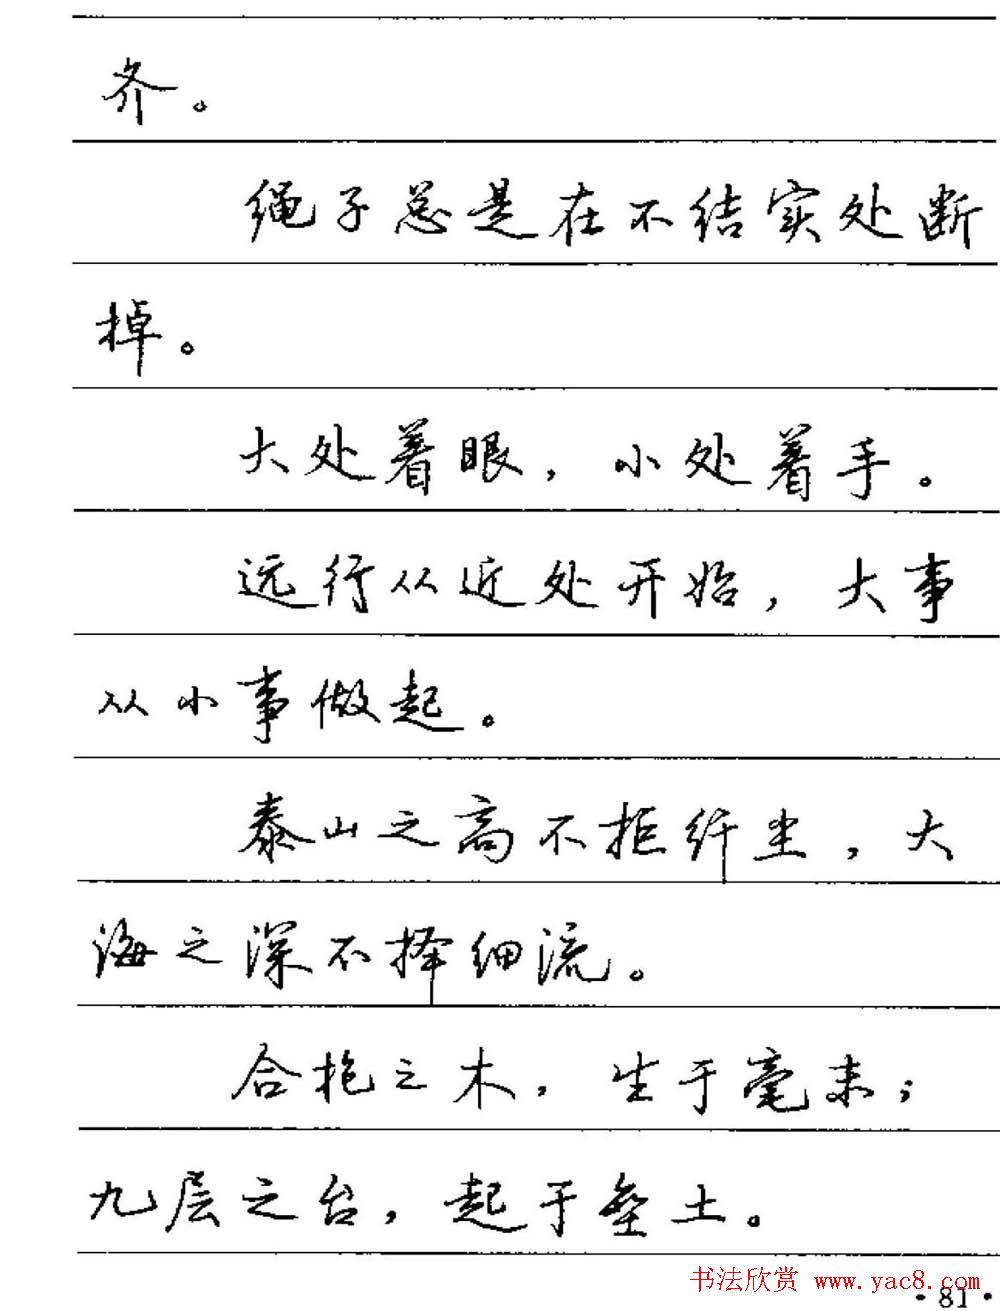 齐。
绳子总是在不结实处断
掉。
大处着眼，小处着手。
远行从近处开始，大事
从小事做起。
泰山之高不拒纤尘，大
海之深不择细流。
合抱之木，生于毫末；
九层之台，起于垒土。
书法欣赏 www.yac8.com
·81·